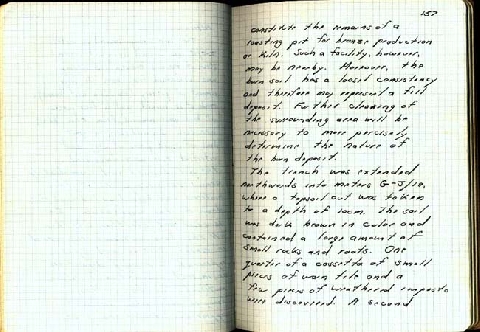 157
constitute the remains of a
roasting pit for bronze production
or kiln. Such a facility, however,
may be nearby. Moreover, the
burn soil has a loose consistency
and therefore may represent a fill
deposit. Further cleaning of
the surrounding area will be
necessary to more percisely
determine the nature of
the burn deposit.
The trench was extended
northwards into meters G-J/18,
where a topsoil cut was taken
to a depth of 10cm. The soil
was dark brown in color and
contained a large amount of
small rocks and roots. One
quarter of a cassetta of small
pieces of worn tile and a
few pieces of weathered impasto
were discovered. A second